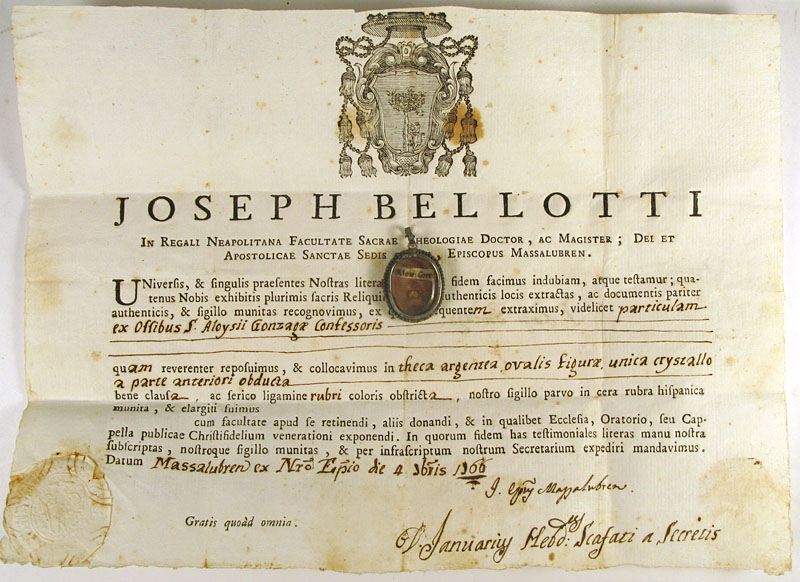 JOSEPH BELLOTTI
In Regali Neapolitana Facultate Sacrae Theologiae Doctor, ac Magister; Dei et
Apostolicae Sanctae Sedis , Episcopus Massalubren.
Aloy: Conf:
UNiversis, & singulis praesentes Nostras litera fidem facimus indubiam, atque testamur; qua-
tenus Nobis exhibitis plurimis sacris Reliqui uthenticis locis extractas, ac documentis pariter
authenticis, & sigillo munitas recognovimus, ex equentem extraximus, videlicet particulam
ex Ossibus S. Aloysii Gonzagæ Confessoris
quam reverenter reposuimus, & collocavimus in theca argentea ovalis figuræ, unica crystallo
a parte anteriori obducta
bene clausa, ac serico ligamine rubri coloris obstricta, nostro sigillo parvo in cera rubra hispanica
munita, & elargiti fuimus
cum facultate apud se retinendi, aliis donandi, & in qualibet Ecclesia, Oratorio, seu Cap-
pella publicae Christifidelium venerationi exponendi. In quorum fidem has testimoniales literas manu nostra
subscriptas, nostroque sigillo munitas, & per infrascriptum nostrum Secretarium expediri mandavimus.
Datum Massalubren ex Nrō Epīo die 4 bris
J. Epus Massalubren.
Gratis quoàd omnia.
Januarius Hebd: Scafati a Secretis